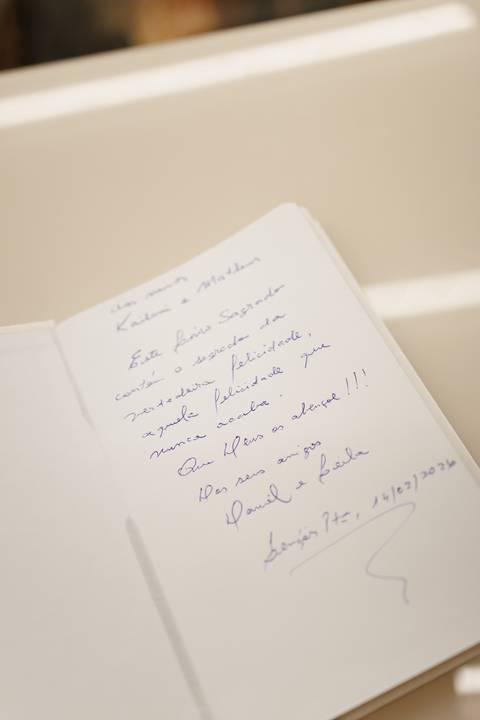 Aos noivos
Kailani e Matheus
Este Livro Sagrado
contém o segredo da
verdadeira felicidade,
aquela felicidade que
nunca acaba.
Que Deus os abençoe!!!
Dos seus amigos
Daniel e Leila
14/02/2026